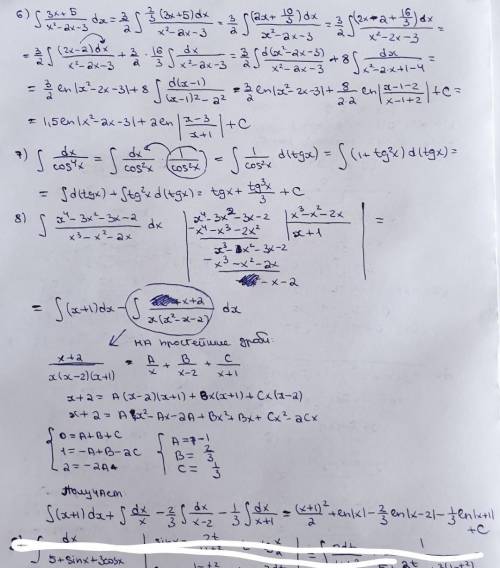 6) ∫ (3x+5)/(x²-2x-3) dx = 3/2 ∫ (2/3 (3x+5)dx)/(x²-2x-3) = 3/2 ∫ ((2x+10/3)dx)/(x²-2x-3) = 3/2 ∫ ((2x-2+16/3)dx)/(x²-2x-3) =
= 3/2 ∫ ((2x-2)dx)/(x²-2x-3) + 3/2 · 16/3 ∫ dx/(x²-2x-3) = 3/2 ∫ d(x²-2x-3)/(x²-2x-3) + 8 ∫ dx/(x²-2x+1-4) =
= 3/2 ln|x²-2x-3| + 8 ∫ d(x-1)/((x-1)²-2²) = 3/2 ln|x²-2x-3| + 8/(2·2) ln|(x-1-2)/(x-1+2)| + C =
= 1,5 ln|x²-2x-3| + 2 ln|(x-3)/(x+1)| + C
7) ∫ dx/cos⁴x = ∫ dx/cos²x · 1/cos²x = ∫ 1/cos²x d(tgx) = ∫ (1+tg²x) d(tgx) =
= ∫ d(tgx) + ∫ tg²x d(tgx) = tgx + tg³x/3 + C
8) ∫ (x⁴-3x²-3x-2)/(x³-x²-2x) dx | x⁴-3x²-3x-2 | x³-x²-2x | =
- x⁴-x³-2x² | x+1
x³-x²-3x-2
- x³-x²-2x
-x-2
= ∫ (x+1)dx - ∫ (x+2)/(x(x²-x-2)) dx
на простейшие дроби:
(x+2)/(x(x-2)(x+1)) = A/x + B/(x-2) + C/(x+1)
x+2 = A(x-2)(x+1) + Bx(x+1) + Cx(x-2)
x+2 = Ax²-Ax-2A+Bx²+Bx+Cx²-2Cx
{ 0=A+B+C { A=-1
1=-A+B-2C B=2/3
2=-2A C=1/3
Получаем
∫(x+1)dx + ∫ dx/x - 2/3 ∫ dx/(x-2) - 1/3 ∫ dx/(x+1) = (x+1)²/2 + ln|x| - 2/3 ln|x-2| - 1/3 ln|x+1| + C
∫ dx/(5+sinx+3cosx)